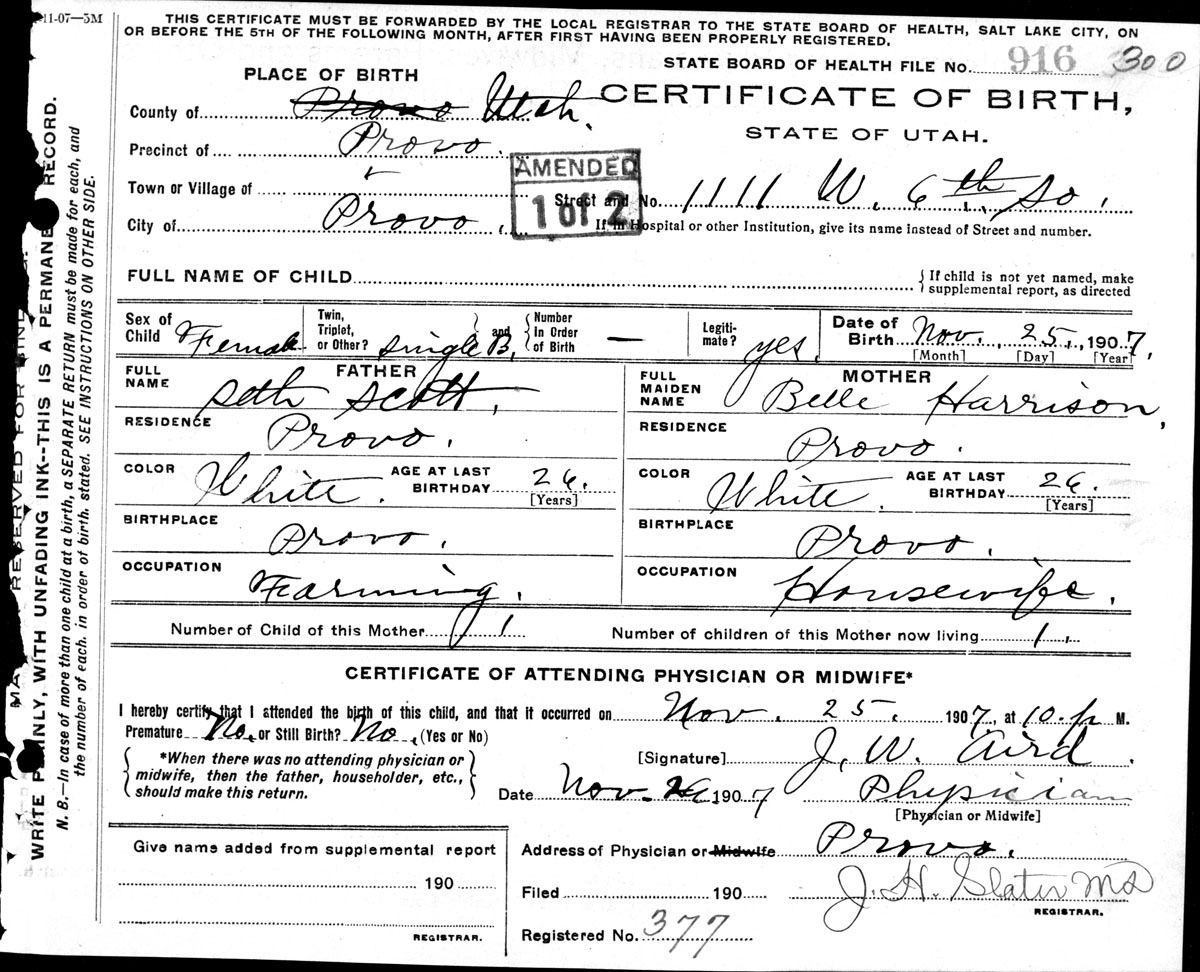 11-07—3M
THIS CERTIFICATE MUST BE FORWARDED BY THE LOCAL REGISTRAR TO THE STATE BOARD OF HEALTH, SALT LAKE CITY, ON
OR BEFORE THE 5TH OF THE FOLLOWING MONTH, AFTER FIRST HAVING BEEN PROPERLY REGISTERED.
STATE BOARD OF HEALTH FILE No. 916 300
PLACE OF BIRTH
CERTIFICATE OF BIRTH,
STATE OF UTAH.
County of Provo Utah.
Precinct of Provo.
AMENDED
1 of 2
Town or Village of
Street and No. 1111 W. 6th. So.
City of Provo.
If in Hospital or other Institution, give its name instead of Street and number.
FULL NAME OF CHILD
{ If child is not yet named, make
supplemental report, as directed
Sex of Child Female
Twin, Triplet, or Other? single B. } and { Number In Order of Birth —
Legiti-mate? yes.
Date of Birth Nov. 25., 1907,
[Month] [Day] [Year]
FATHER
FULL NAME Seth Scott,
RESIDENCE Provo.
COLOR White. AGE AT LAST BIRTHDAY 26. [Years]
BIRTHPLACE Provo.
OCCUPATION Farming.
MOTHER
FULL MAIDEN NAME Belle Harrison,
RESIDENCE Provo.
COLOR White. AGE AT LAST BIRTHDAY 26. [Years]
BIRTHPLACE Provo.
OCCUPATION Housewife.
Number of Child of this Mother 1 Number of children of this Mother now living 1.
CERTIFICATE OF ATTENDING PHYSICIAN OR MIDWIFE*
I hereby certify that I attended the birth of this child, and that it occurred on Nov. 25. 1907, at 10.p M.
Premature No. or Still Birth? No. (Yes or No)
{ *When there was no attending physician or
midwife, then the father, householder, etc.,
should make this return. }
[Signature] J. W. Aird.
Date Nov. 26 1907 Physician
[Physician or Midwife]
Give name added from supplemental report
190
REGISTRAR.
Address of Physician or Midwife Provo.
Filed 190 J. H. Slater MD
REGISTRAR.
Registered No. 377
MA RESERVED FOR BIND G.
WRITE PLAINLY, WITH UNFADING INK--THIS IS A PERMANE RECORD.
N. B.—In case of more than one child at a birth, a SEPARATE RETURN must be made for each, and
the number of each, in order of birth, stated. SEE INSTRUCTIONS ON OTHER SIDE.